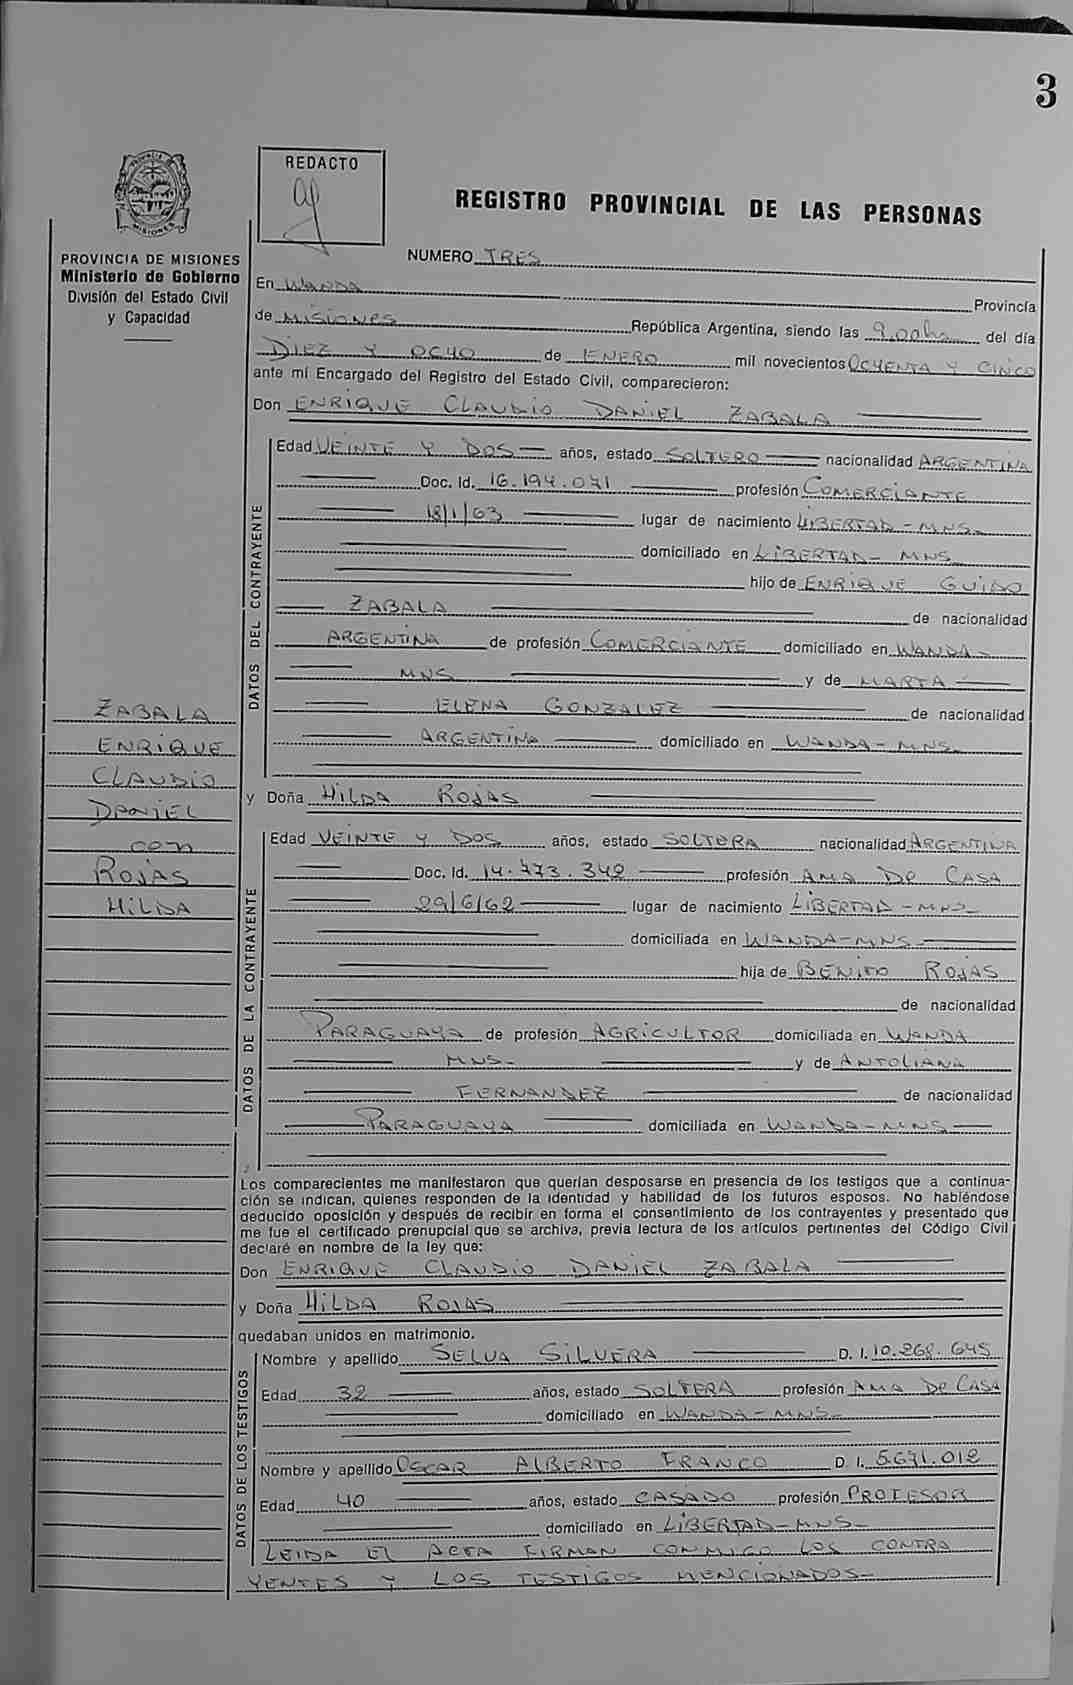 3
REDACTO
REGISTRO PROVINCIAL DE LAS PERSONAS
PROVINCIA DE MISIONES
Ministerio de Gobierno
División del Estado Civil
y Capacidad
NUMERO TRES
En WANDA Provincia
de MISIONES República Argentina, siendo las 9.00hs del día
DIEZ Y OCHO de ENERO mil novecientos OCHENTA Y CINCO
ante mí Encargado del Registro del Estado Civil, comparecieron:
Don ENRIQUE CLAUDIO DANIEL ZABALA
DATOS DEL CONTRAYENTE
Edad VEINTE Y DOS años, estado SOLTERO nacionalidad ARGENTINA
Doc. Id. 16.194.071 profesión COMERCIANTE
18/1/63 lugar de nacimiento LIBERTAD - MNS
domiciliado en LIBERTAD - MNS
hijo de ENRIQUE GUIDO
ZABALA de nacionalidad
ARGENTINA de profesión COMERCIANTE domiciliado en WANDA-
MNS y de MARTA
ELENA GONZALEZ de nacionalidad
ARGENTINA domiciliado en WANDA - MNS
ZABALA
ENRIQUE
CLAUDIO
DANIEL
con
ROJAS
HILDA
y Doña HILDA ROJAS
DATOS DE LA CONTRAYENTE
Edad VEINTE Y DOS años, estado SOLTERA nacionalidad ARGENTINA
Doc. Id. 14.773.342 profesión AMA DE CASA
29/6/62 lugar de nacimiento LIBERTAD - MNS
domiciliada en WANDA - MNS
hija de BENITO ROJAS
de nacionalidad
PARAGUAYA de profesión AGRICULTOR domiciliada en WANDA
MNS- y de ANTOLIANA
FERNANDEZ de nacionalidad
PARAGUAYA domiciliada en WANDA - MNS
Los comparecientes me manifestaron que querían desposarse en presencia de los testigos que a continua-
ción se indican, quienes responden de la identidad y habilidad de los futuros esposos. No habiéndose
deducido oposición y después de recibir en forma el consentimiento de los contrayentes y presentado que
me fue el certificado prenupcial que se archiva, previa lectura de los artículos pertinentes del Código Civil
declaré en nombre de la ley que:
Don ENRIQUE CLAUDIO DANIEL ZABALA
y Doña HILDA ROJAS
quedaban unidos en matrimonio.
DATOS DE LOS TESTIGOS
Nombre y apellido SELVA SILVERA D. I. 10.268.645
Edad 32 años, estado SOLTERA profesión AMA DE CASA
domiciliado en WANDA - MNS
Nombre y apellido OSCAR ALBERTO FRANCO D. I. 5.671.012
Edad 40 años, estado CASADO profesión PROFESOR
domiciliado en LIBERTAD - MNS-
LEIDA EL ACTA FIRMAN CONMIGO LOS CONTRA
YENTES Y LOS TESTIGOS MENCIONADOS-